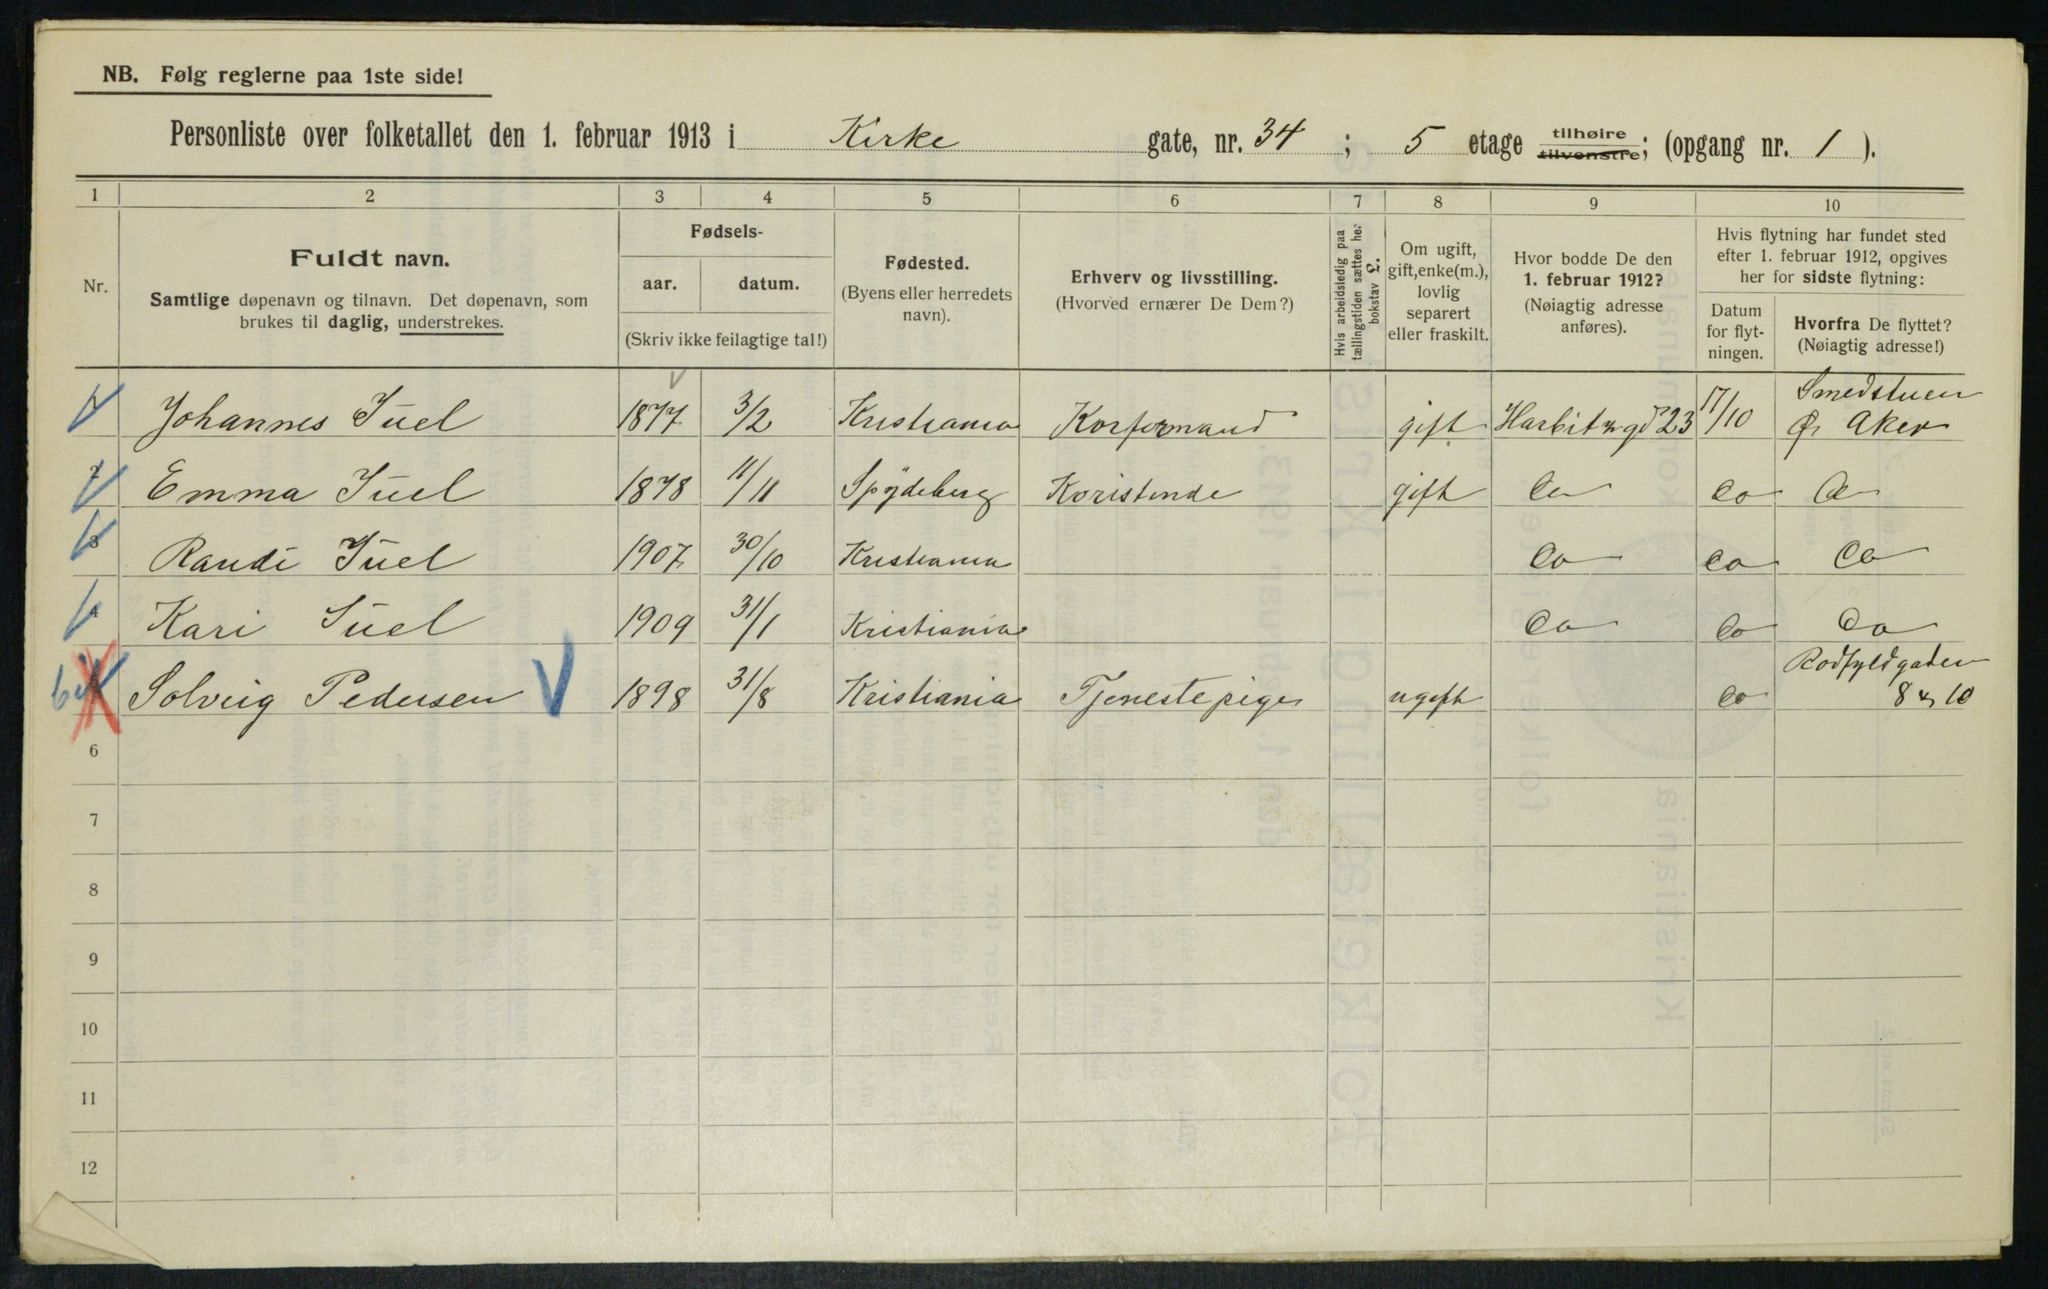 NB. Følg reglerne paa 1ste side!
Personliste over folketallet den 1. februar 1913 i Kirke gate, nr. 34 ; 5 etage tilhøire tilvenstre; (opgang nr. 1 ).
1 2 3 4 5 6 7 8 9 10
Nr.
Fuldt navn.
Samtlige døpenavn og tilnavn. Det døpenavn, som
brukes til daglig, understrekes.
Fødsels-
aar. datum.
(Skriv ikke feilagtige tal!)
Fødested.
(Byens eller herredets
navn).
Erhverv og livsstilling.
(Hvorved ernærer De Dem?)
Hvis arbeidsledig paa
tællingstiden sættes her
bokstav L.
Om ugift,
gift, enke(m.),
lovlig
separert
eller fraskilt.
Hvor bodde De den
1. februar 1912?
(Nøiagtig adresse
anføres).
Hvis flytning har fundet sted
efter 1. februar 1912, opgives
her for sidste flytning:
Datum
for flyt-
ningen.
Hvorfra De flyttet?
(Nøiagtig adresse!)
Johannes Juel 1877 3/2 Kristiania Korformand gift 23 17/10 Smedstuen
Ø. Aker
2 Emma Juel 1878 11/11 Spydeberg Koristinde gift Do Do Do
3 Randi Juel 1907 30/10 Kristiania Do Do Do
4 Kari Juel 1909 31/1 Kristiania Do Do Do
Solveig Pedersen 1898 31/8 Kristiania Tjenestepige ugift Do Rodfyldgaden
8 10
6
7
8
9
10
11
12